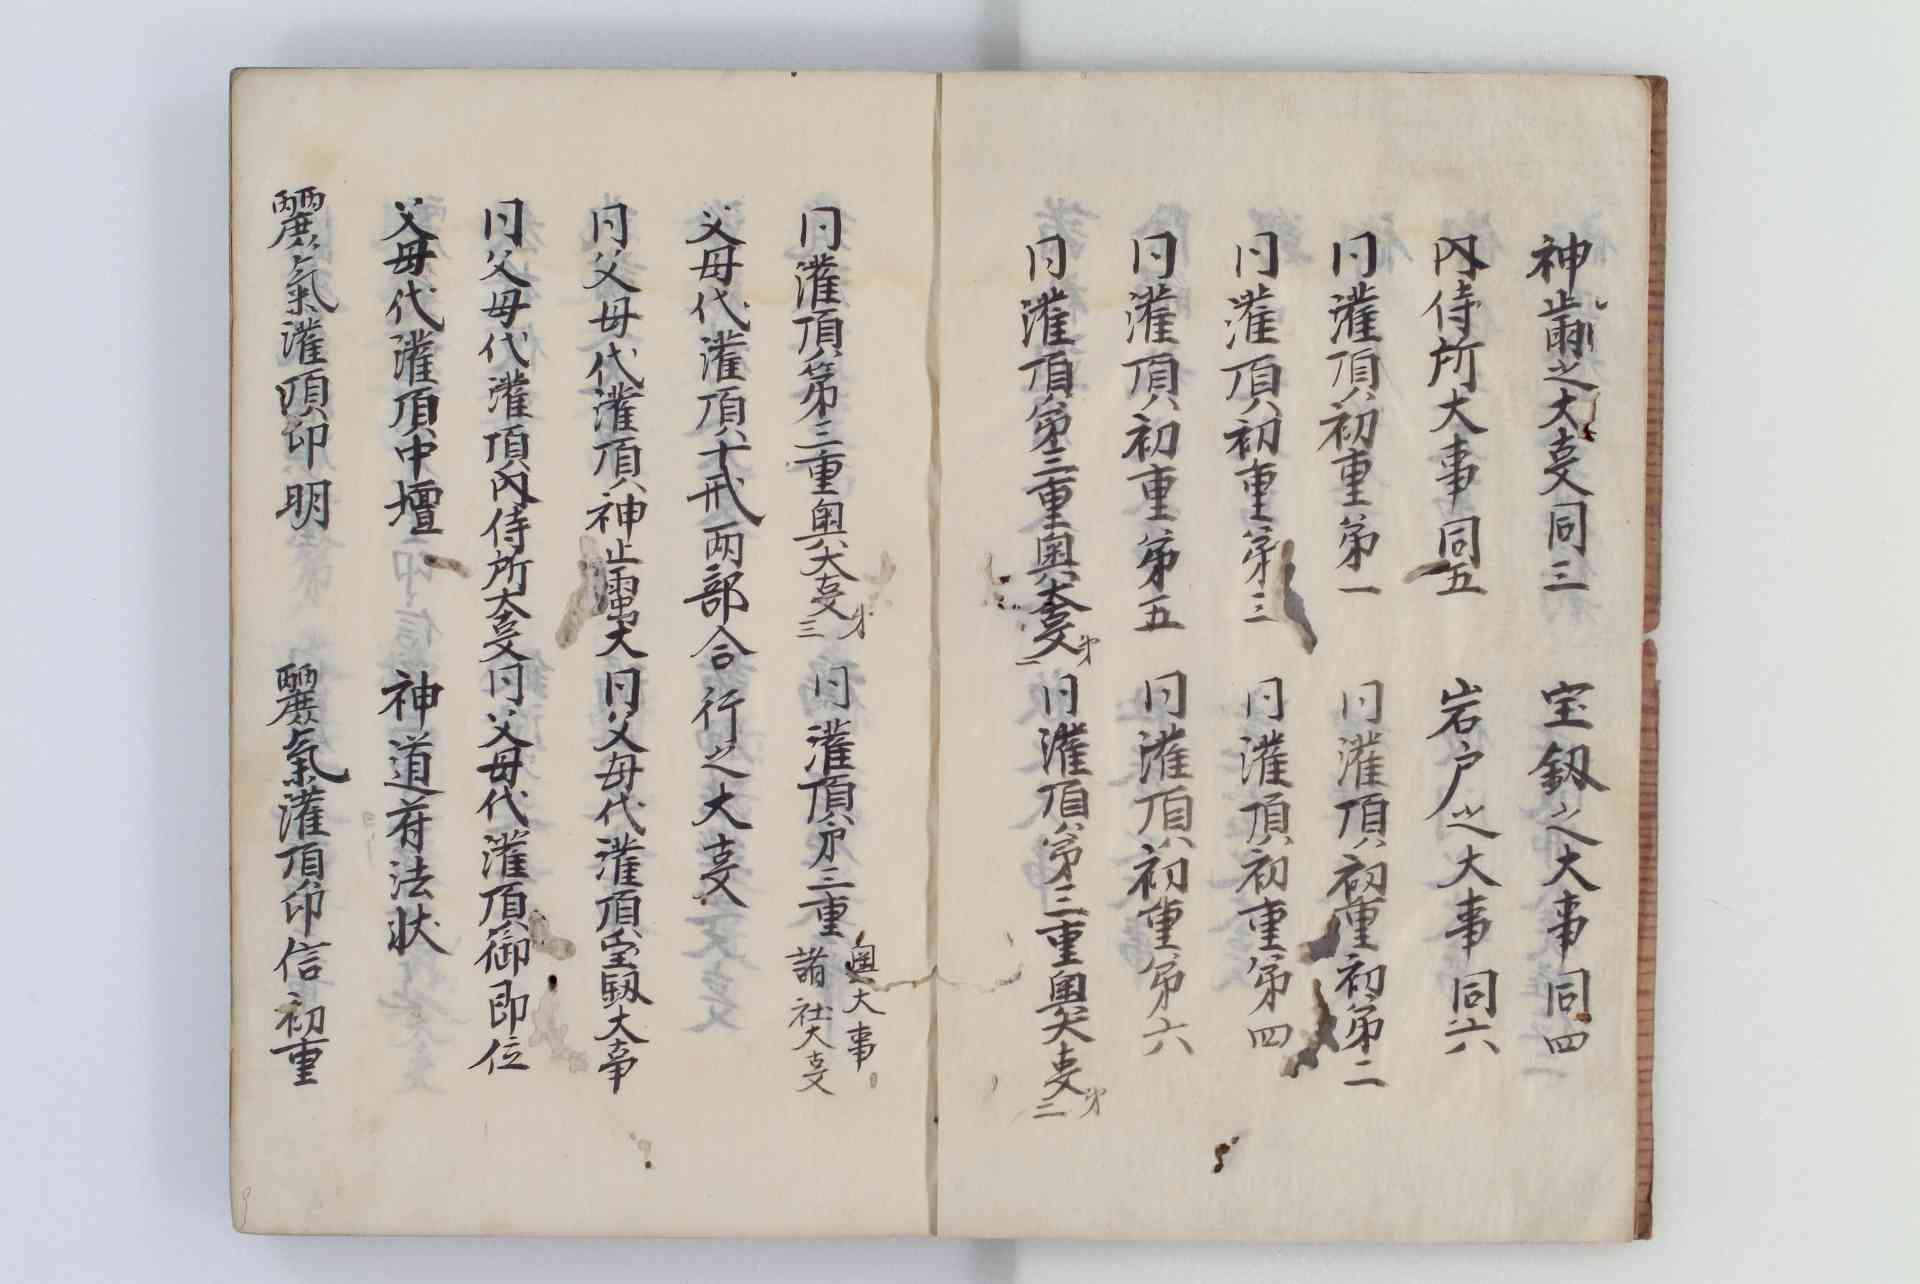 神前之大事同三　宝釼之大事同四
内侍所大事同五　岩戸之大事同六
同灌頂初重第一　同灌頂初重初第二
同灌頂初重第三　同灌頂初重第四
同灌頂初重第五　同灌頂初重第六
同灌頂第三重奥大事第一　同灌頂第三重奥大事第二
同灌頂第三重奥大事第三　同灌頂第三重奥大事諸社大事
父母代灌頂十戒両部合行之大事
同父母代灌頂神璽大　同父母代灌頂宝釼大事
同父母代灌頂内侍所大事同父母代灌頂御即位
父母代灌頂中壇　神道府法状
麗氣灌頂印明　麗氣灌頂印信初重